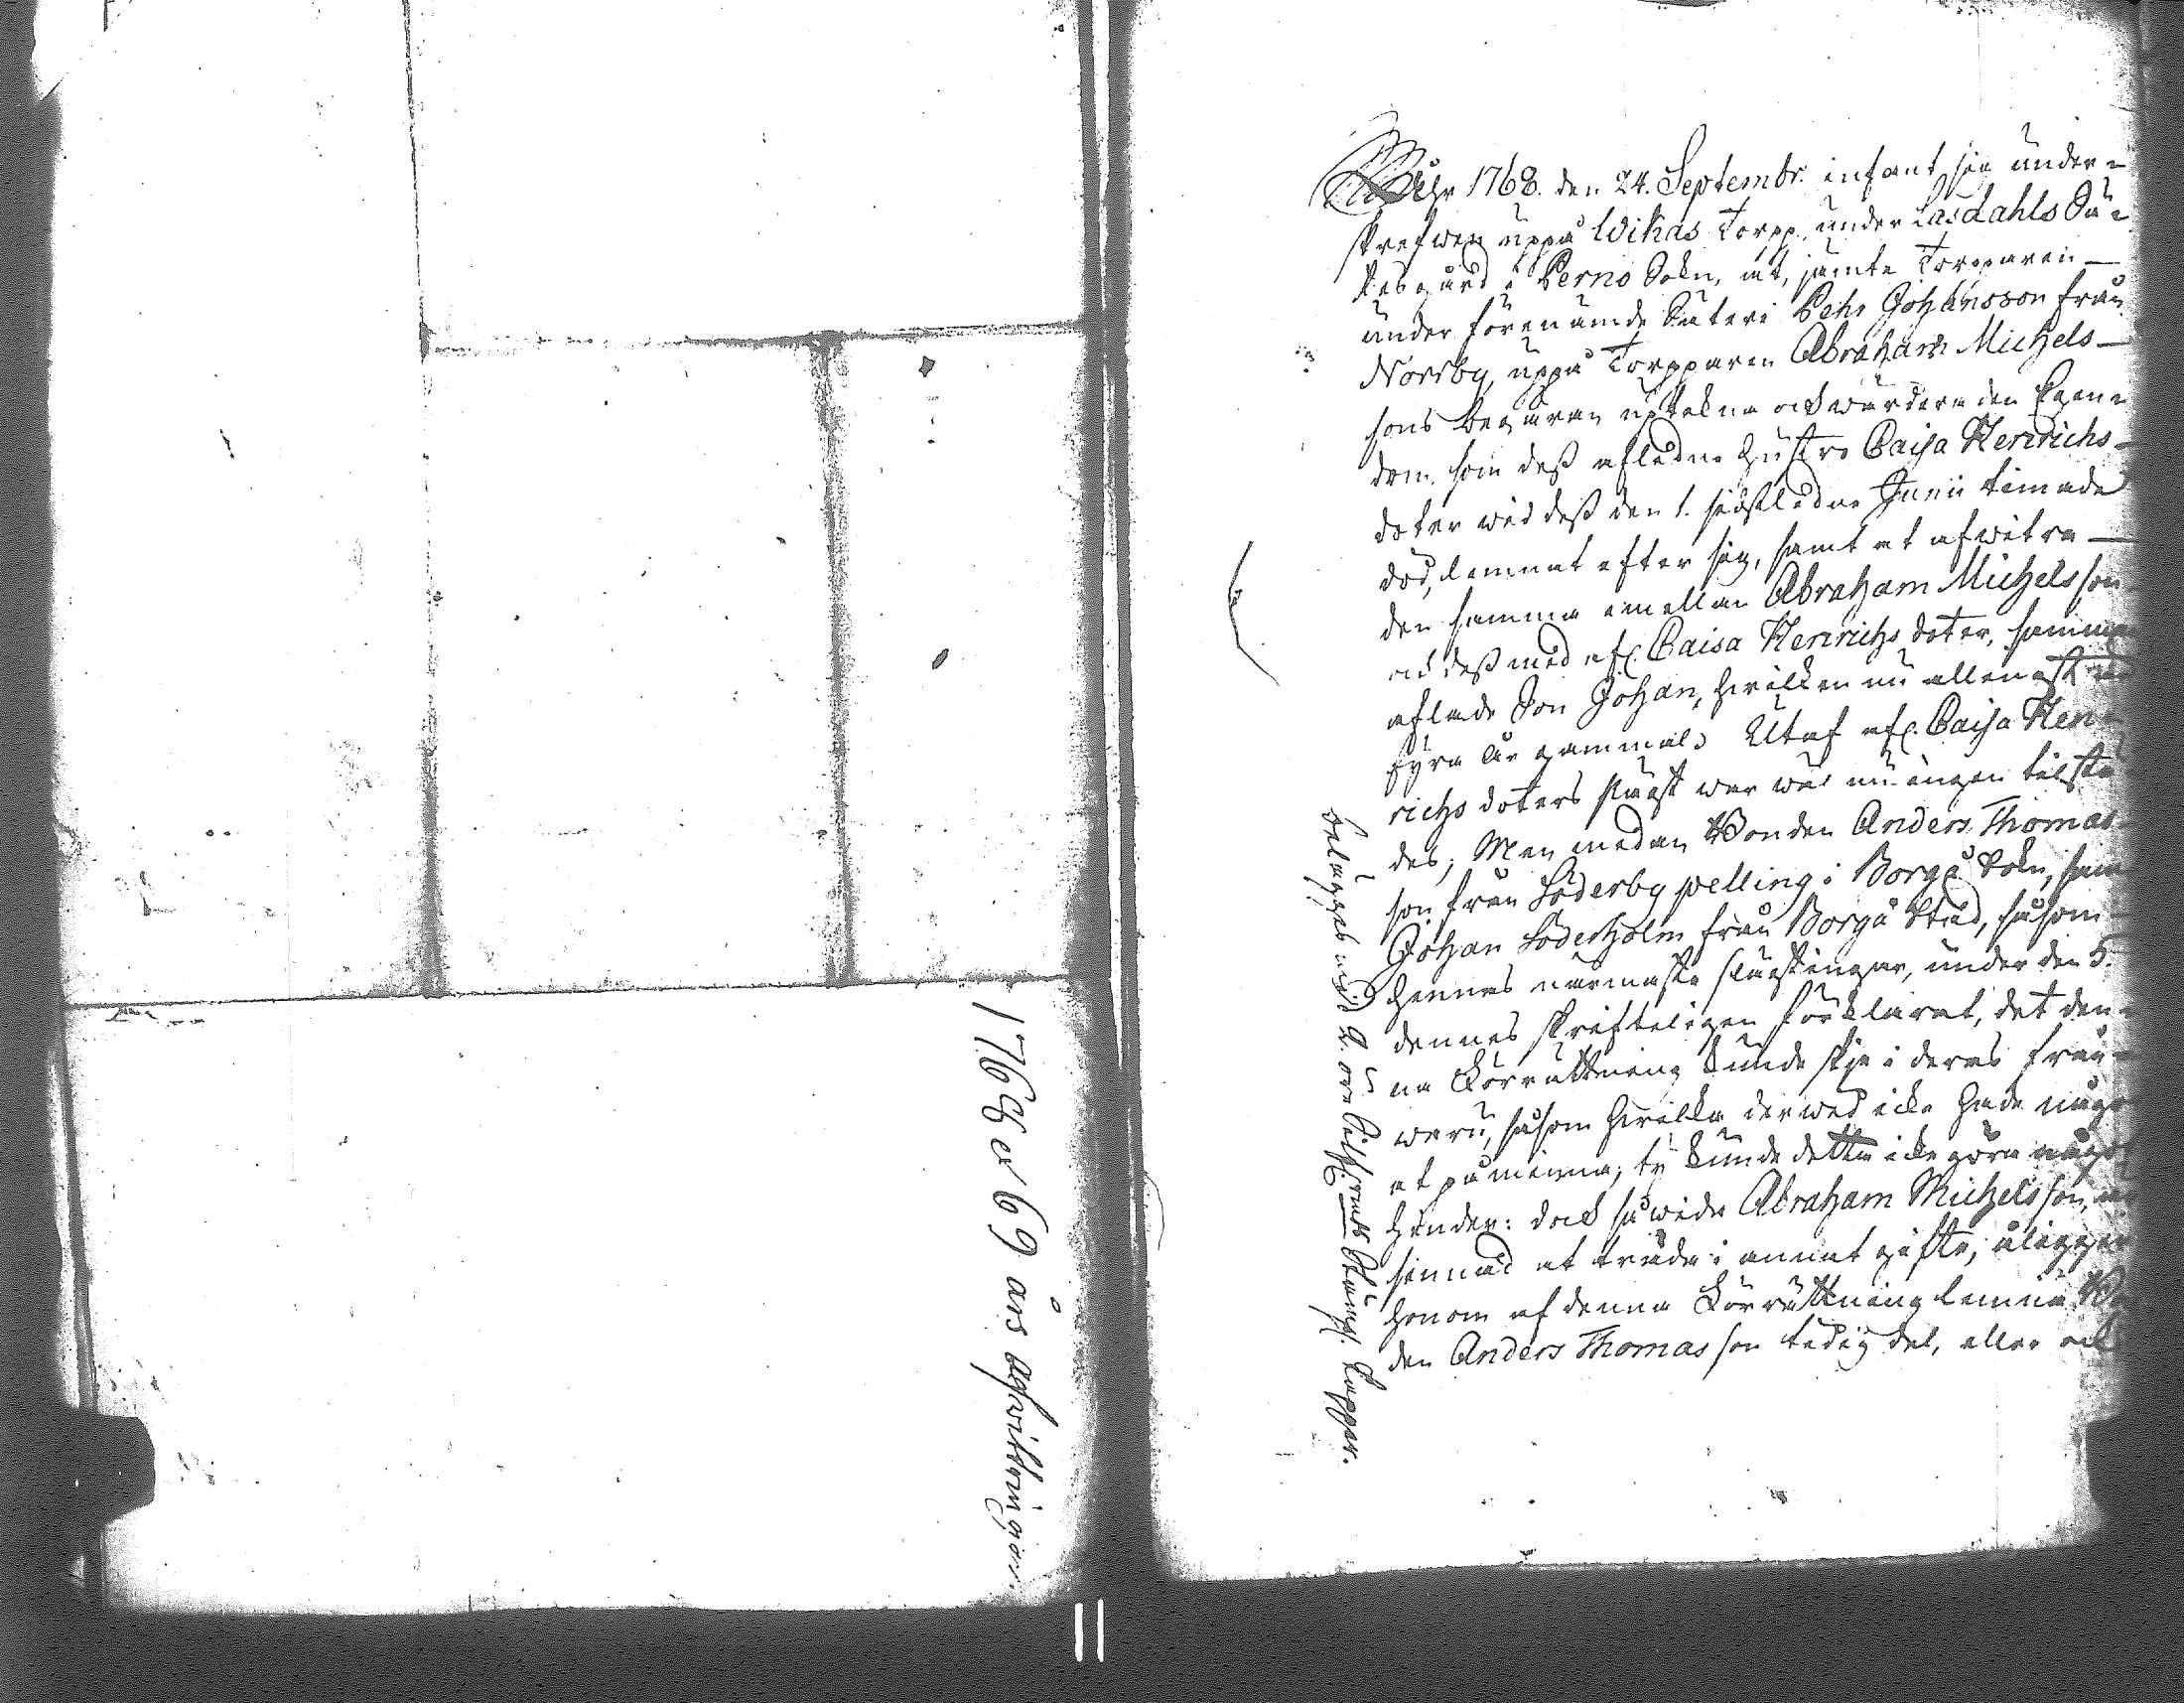 1768 er 69 års afwittningar
Åhr 1768. den 24. Septembr. infant sig under=
skrefwen uppå Wikas Torpp. under Lasdahls Sä=
tesgård i Perno Sokn, at, jämte Torpparen
under förenämde Säteri Pehr Johansson från
Norrby, uppå Torpparen Abraham Michels
sons begäran uptekna ock wärdera den Egen=
dom, som dess afledne Hustro Caisa Henrichs
doter wid dess den 1. sidstledne Junii timade
död, lemnat efter sig, samt at afwitra
den samma emellan Abraham Michelsson
ock dess med afl. Caisa Henrichs doter, samman
aflade Son Johan, hwilken nu allenast är
fyra År gammal. Utaf afl. Caisa Hen=
richs doters slägt war wäl nu ingen tilstä
des; Men medan Bonden Anders Thomas
son från Söderby pelling i Borgå Sokn, samt
Johan Söderholm från Borgå Stad, såsom
hennes närmaste slägtingar, under den 5.
dennes skrifteligen förklarat, det den=
na Förrättning kunde skje i deras från=
waru, såsom hwilka derwed icke hade någo
at påminna; ty kunde detta icke göra något
hinder: dock så wida Abraham Michelsson, är
sinnad at träda i annat gifte, åligger
honom af denna Förrättning lemna Bo
den Anders Thomasson tidig del, eller ock
belägges med 2. öre Silf:mt Stämpl. Papper.